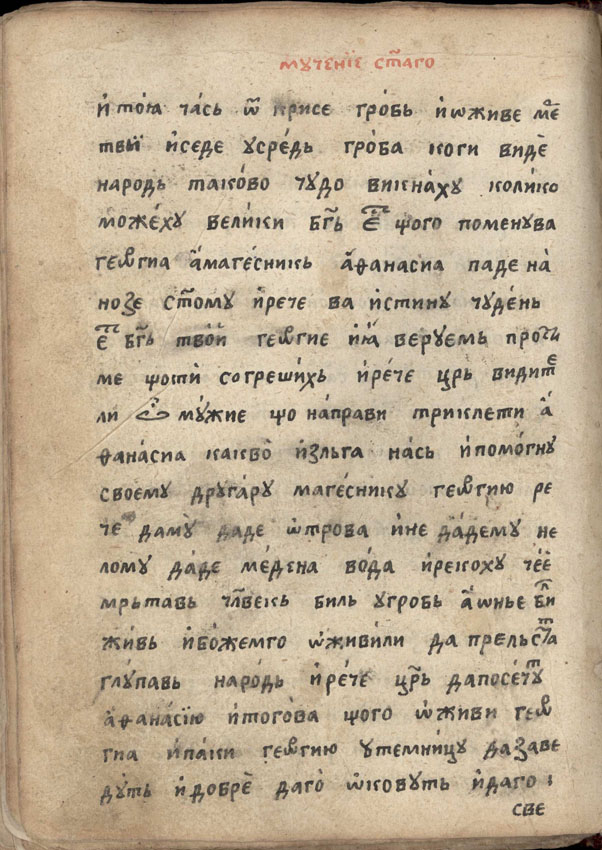 мꙋченїе ст҃аго
и҆ тоꙗ часъ ѿ крисе гробь и҆ѡживе мр҃
твы́й и҆седе ꙋсре́дь гро́ба коги видѐ
народь таково чꙋдо викнахꙋ колико
може́хꙋ вели́ки бг҃ь є҆ст҃ що́го поменꙋва
геѡргиа а҆магесникь а҆ѳанасиа паде на̀
нозе ст҃омꙋ и҆рече ва и҆стинꙋ чꙋде́нь
є҆ст҃ бг҃ь твой геѡргие и҆ꙗ҆ верꙋемь прости
ме щости̏ согреши́хь и҆ре́че цр҃ь видите
ли ѽ мꙋ́жие що на́прави триклети а҆
ѳана́сиа какво̀ и҆зльга на́сь и҆помо́гнꙋ
своемꙋ дрꙋга́рꙋ магеснику геѡргию ре
че дамꙋ̀ даде ѡ҆трова и҆не да́демꙋ не
ломꙋ да́де ме́дена во́да и҆рекохꙋ че́е҆
мрьтавь чл҃векь биль ꙋгробь а҆ѡнье би́л
жи́вь и҆бо́жемго ѡ҆живи́ли да прельста
глꙋ́павь наро́дь и҆ре́че цр҃ь дапосе́чꙋт
а҆ѳана́сїю и҆того́ва щого ѡ҆живи геѡ
гиа и҆па́ки геѡ́гию ꙋтемни́цꙋ да заве
дꙋ́ть и҆добре̏ даго̀ ѡ҆ковꙋть и҆даго
све